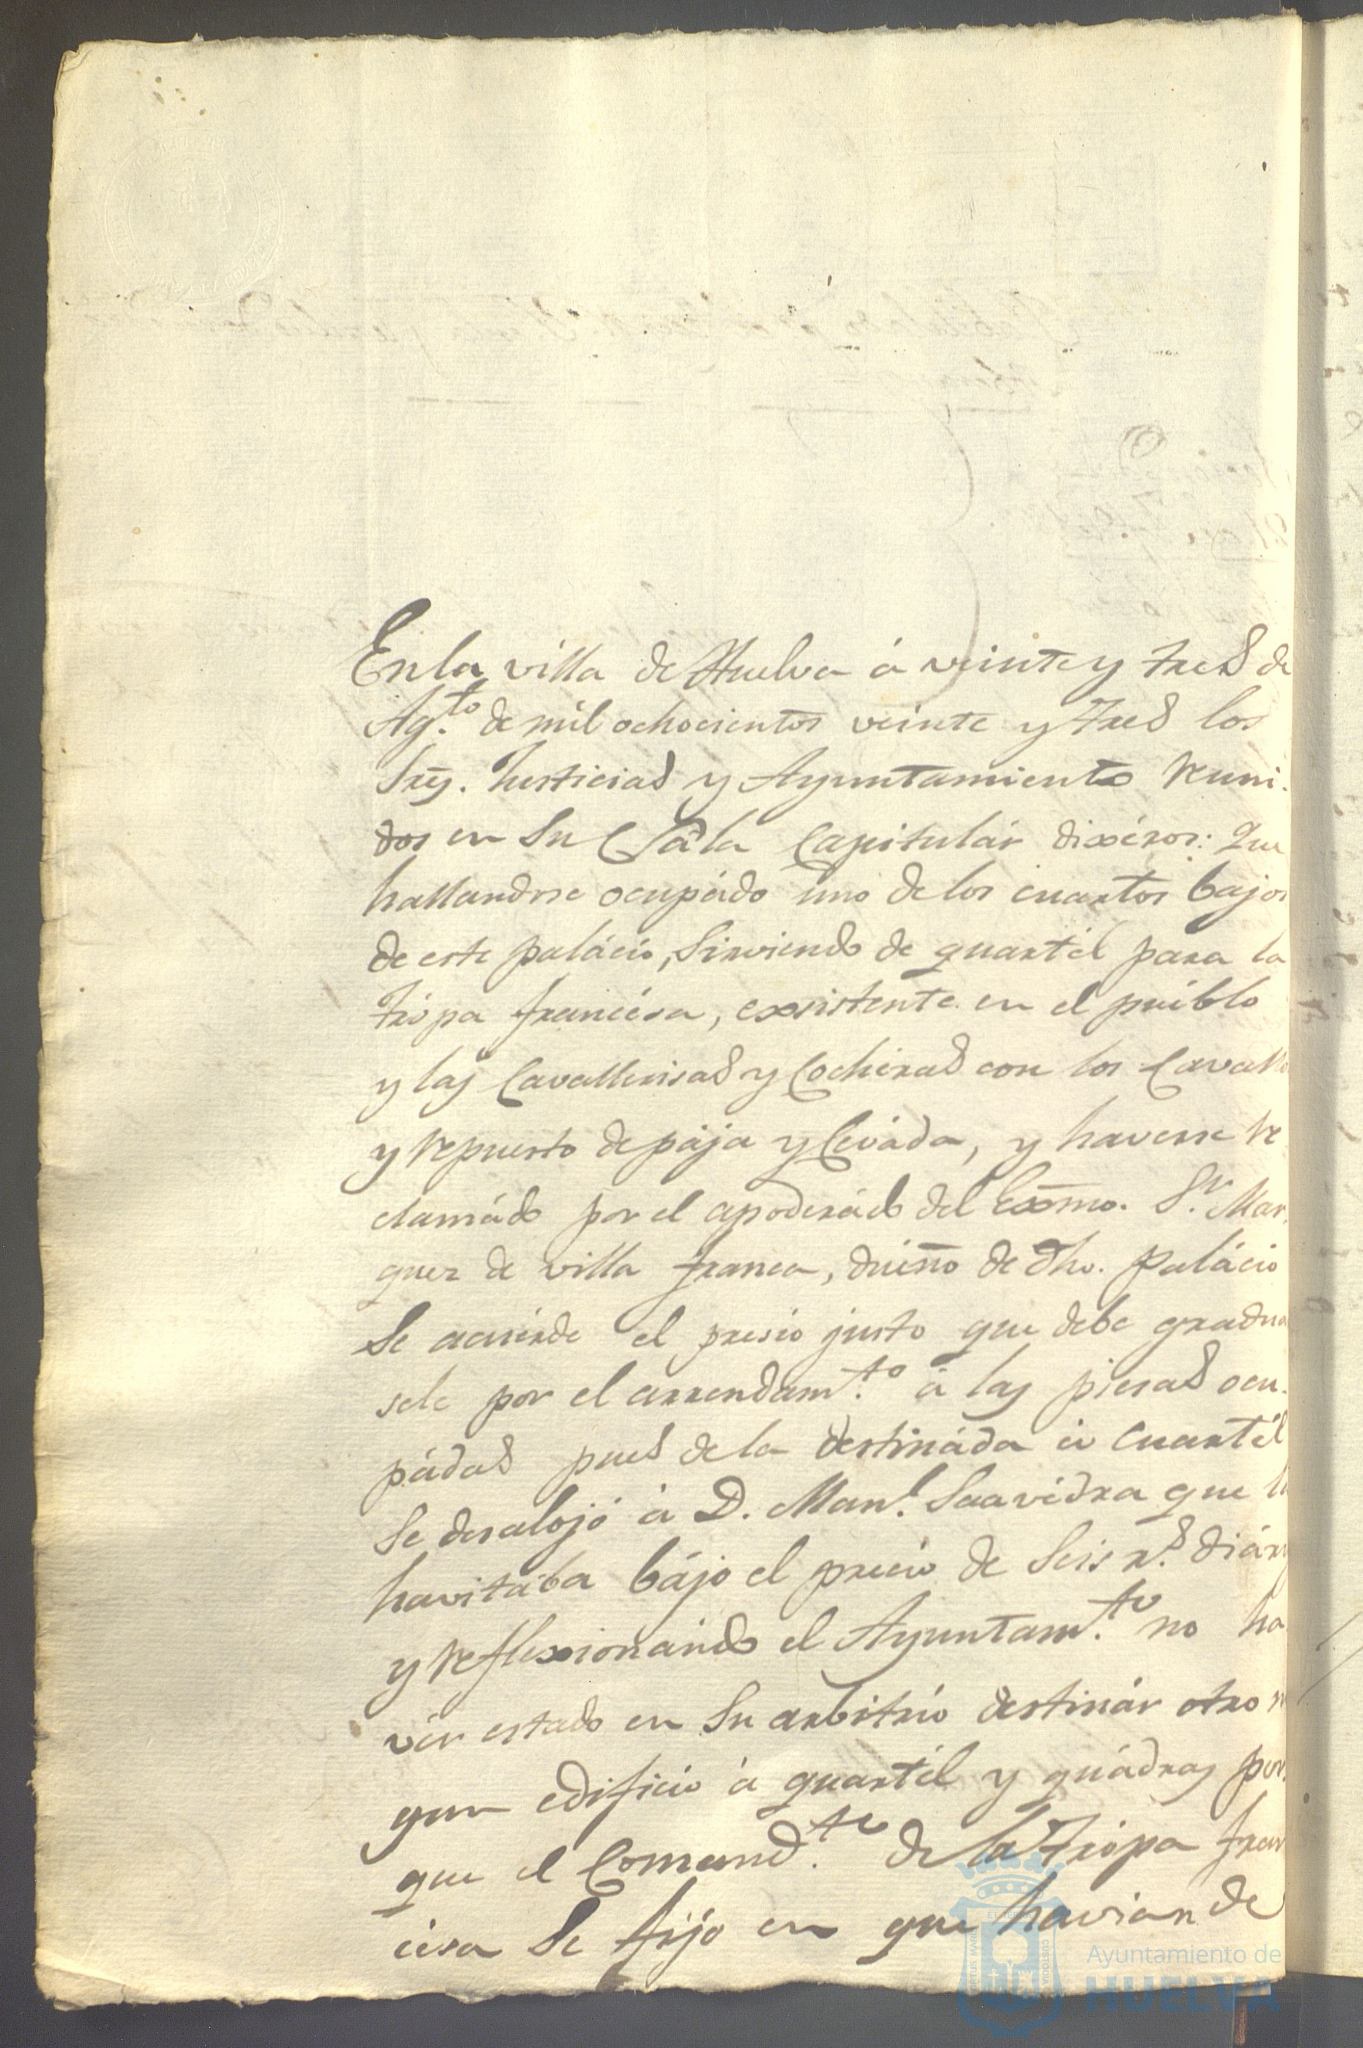 En la villa de Huelva á veinte y tres de
Ag.to de mil ochocientos veinte y tres los
Srs. Justicias y Ayuntamiento reuni-
dos en su Sala Capitulár dixéron: Que
hallandose ocupádo uno de los cuartos bajos
de este palácio, sirviendo de quartél para la
trópa francésa, exsistente en el puéblo
y las Cavallerisas y Cocheras con los Cavallo
y repuesto de pája y Ceváda, y haverse re
clamádo por el apoderádo del Exmo. S.r Mar-
quez de villa franca, duéño de dho. palácio
se acuérde el presio justo que debe gradua
sele por el arrendam.to á las piesas ocu-
pádas pues de la destináda á cuartél
se desalojó á D. Man.l Saavédra que la
havitába bájo el précio de seis r.s diário
y reflexionándo el Ayuntam.to no ha
vér estado en su arbitrio destinár otro n
gun edificio á quartél y quádras por-
que el Comand.te de la trópa fran
césa se fijó en que havian de
Ayuntamiento de
HUELVA